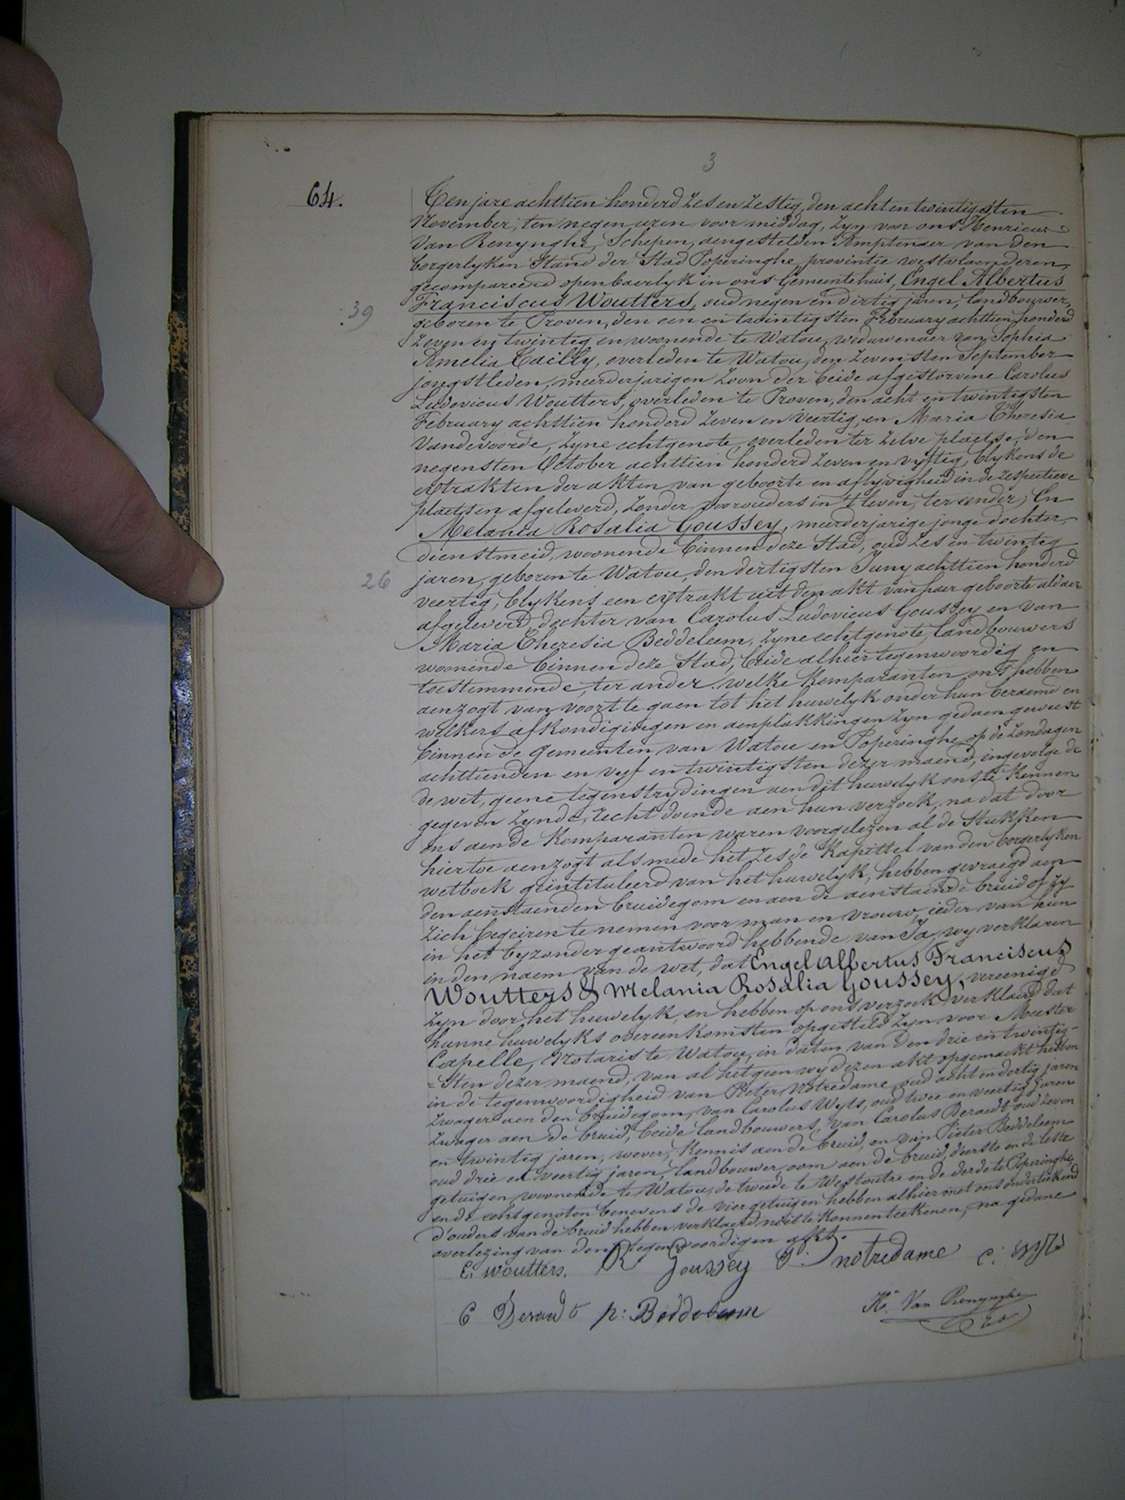 3
64.
Ten jare achttien honderd zes en zestig, den acht en twintigsten
November, ten negen uren voor middag, zyn voor ons Henricus
Van Renynghe, Schepen, aengestelden Amptenaer van den
borgerlyken Stand der Stad Poperinghe, provintie westvlaenderen,
gecompareerd openbaerlyk in ons Gemeentehuis, Engel Albertus
Franciscus Woutters, oud negen en dertig jaren, landbouwer,
39
geboren te Proven, den een en twintigsten February achttien honderd
zeven en twintig en woonende te Watou, weduwenaer van Sophia
Amelia Cailly, overleden te Watou, den zevensten September
jongstleden, meerderjarigen zoon der beide afgestorvene Carolus
Ludovicus Woutters, overleden te Proven, den acht en twintigsten
February achttien honderd zeven en veertig, en Maria Theresia
Vandevoorde, zyne echtgenote, overleden ter zelve plaetse, den
negensten October achttien honderd zeven en vyftig, blykens de
extrakten der akten van geboorte en aflyvigheid in de respectieve
plaetsen afgeleverd, zonder voorouders in 't leven, ter eender; En
Melania Rosalia Goussey, meerderjarige jonge dochter,
dienstmeid, woonende binnen deze Stad, oud zes en twintig
26
jaren, geboren te Watou, den dertigsten Juny achttien honderd
veertig, blykens een extrakt uit den akt van haer geboorte aldaer
afgeleverd, dochter van Carolus Ludovicus Goussey en van
Maria Theresia Beddeleem, zyne echtgenote, landbouwers
woonende binnen deze Stad, beide alhier tegenwoordig en
toestemmende, ter ander. welke komparanten ons hebben
aenzogt van voort te gaen tot het huwelyk onder hun beraemd en
welkers afkondigingen en aenplakkingen zyn gedaen geweest
binnen de Gemeenten van Watou en Poperinghe op de zondagen
achttienden en vyf en twintigsten dezer maend, ingevolge de
de wet, geene tegenstrydingen aen dit huwelyk ons te kennen
gegeven zynde, recht doende aen hun verzoek, na dat door
ons aen de Komparanten waren voorgelezen al de Stukken
hiertoe aenzogt als mede het zesde Kapittel van den borgerlyken
wetboek geïntituleerd van het huwelyk, hebben gevraegd aen
den aenstaenden bruidegom en aen de aenstaende bruid of zy
zich begeiren te nemen voor man en vrouw, ieder van hun
in het byzonder geantwoord hebbende van Ja, wy verklaren
in den naem van de wet, dat Engel Albertus Franciscus
Woutters & Melania Rosalia Goussey, vereenigd
zyn door het huwelyk, en hebben op ons verzoek verklaerd dat
hunne huwelyks overeenkomsten opgesteld zyn voor Meester
Capelle, Notaris te Watou, in daten van den drie en twintig-
-sten dezer maend, van al het geen wy dezen akt opgemaekt hebben
in de tegenwoordigheid van Pieter Notredame, oud acht en dertig jaren
zwager aen den bruidegom, van Carolus Wyts, oud twee en veertig jaren
zwager aen de bruid, beide landbouwers, van Carolus Deraedt, oud zeven
en twintig jaren, wever, kennis aen de bruid, en van Pieter Beddeleem
oud drie en veertig jaren, landbouwer, oom aen de bruid, deerste en de leste
getuigen woonende te Watou, de tweede te Westoutre en de derde te Poperinghe
en de echtgenoten benevens de vier getuigen hebben alhier met ons onderteekend
d'ouders van de bruid hebben verklaerd niet te konnen teekenen, na gedane
overlezing van den tegenwoordigen akt.
E: woutters. R Goussey P: notredame C: wyts
C Deraedt p: Beddeleem Hs. Van Renynghe